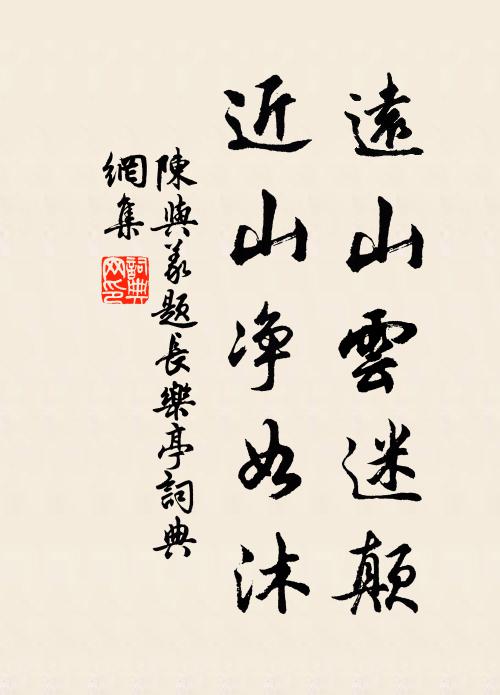 遠山雲迷顛
近山淨如沐
陳與義題長樂亭詞典
網集
詞典網印